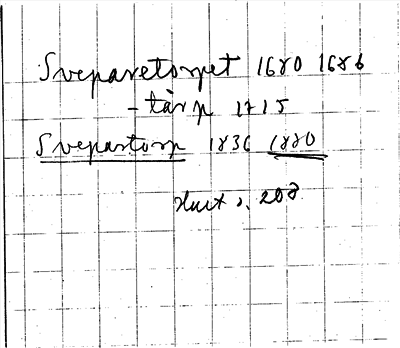 Sveparetorpet 1680 1686
- tårp 1715
Svepartorp 1836 1880
s. 208